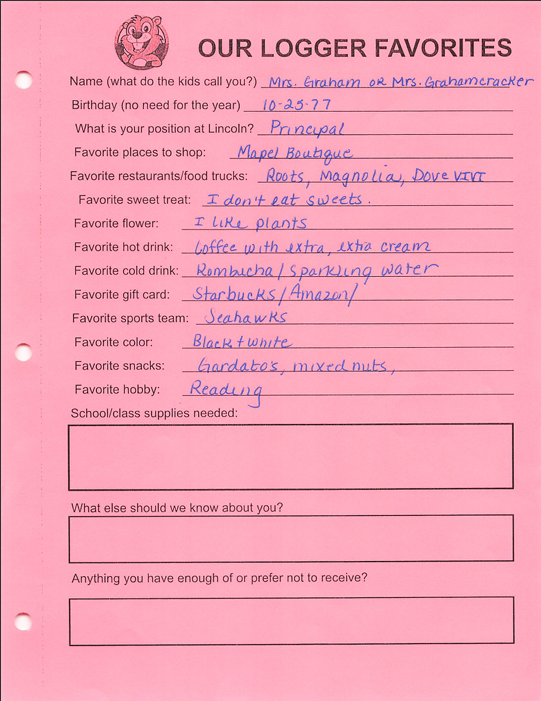 OUR LOGGER FAVORITES
Name (what do the kids call you?) Mrs. Graham or Mrs. Grahamcracker
Birthday (no need for the year) 10-25-77
What is your position at Lincoln? Principal
Favorite places to shop: Mapel Boutique
Favorite restaurants/food trucks: Roots, Magnolia, Dove vivi
Favorite sweet treat: I don't eat sweets.
Favorite flower: I like plants
Favorite hot drink: Coffee with extra, extra cream
Favorite cold drink: Kombucha/Sparkling water
Favorite gift card: Starbucks/Amazon/
Favorite sports team: Seahawks
Favorite color: Black + white
Favorite snacks: Gardatos, mixed nuts,
Favorite hobby: Reading
School/class supplies needed:
What else should we know about you?
Anything you have enough of or prefer not to receive?